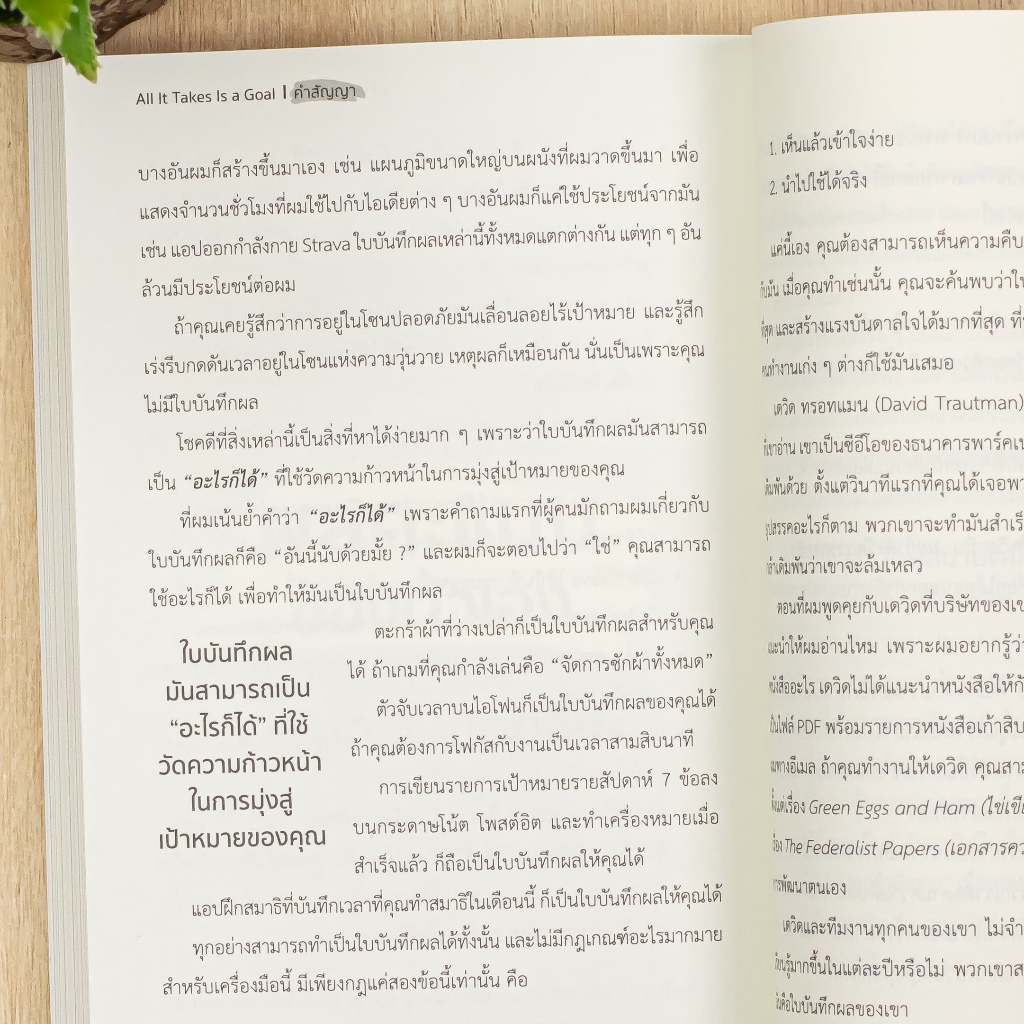 All It Takes Is a Goal | คำสัญญา
บางอันผมก็สร้างขึ้นมาเอง เช่น แผนภูมิขนาดใหญ่บนผนังที่ผมวาดขึ้นมา เพื่อ
แสดงจำนวนชั่วโมงที่ผมใช้ไปกับไอเดียต่าง ๆ บางอันผมก็แค่ใช้ประโยชน์จากมัน
เช่น แอปออกกำลังกาย Strava ใบบันทึกผลเหล่านี้ทั้งหมดแตกต่างกัน แต่ทุก ๆ อัน
ล้วนมีประโยชน์ต่อผม
ถ้าคุณเคยรู้สึกว่าการอยู่ในโซนปลอดภัยมันเลื่อนลอยไร้เป้าหมาย และรู้สึก
เร่งรีบกดดันเวลาอยู่ในโซนแห่งความวุ่นวาย เหตุผลก็เหมือนกัน นั่นเป็นเพราะคุณ
ไม่มีใบบันทึกผล
โชคดีที่สิ่งเหล่านี้เป็นสิ่งที่หาได้ง่ายมาก ๆ เพราะว่าใบบันทึกผลมันสามารถ
เป็น “อะไรก็ได้” ที่ใช้วัดความก้าวหน้าในการมุ่งสู่เป้าหมายของคุณ
ที่ผมเน้นย้ำคำว่า “อะไรก็ได้” เพราะคำถามแรกที่ผู้คนมักถามผมเกี่ยวกับ
ใบบันทึกผลก็คือ “อันนี้นับด้วยมั้ย ?” และผมก็จะตอบไปว่า “ใช่” คุณสามารถ
ใช้อะไรก็ได้ เพื่อทำให้มันเป็นใบบันทึกผล
ใบบันทึกผล
มันสามารถเป็น
“อะไรก็ได้” ที่ใช้
วัดความก้าวหน้า
ในการมุ่งสู่
เป้าหมายของคุณ
ตะกร้าผ้าที่ว่างเปล่าก็เป็นใบบันทึกผลสำหรับคุณ
ได้ ถ้าเกมที่คุณกำลังเล่นคือ “จัดการซักผ้าทั้งหมด”
ตัวจับเวลาบนไอโฟนก็เป็นใบบันทึกผลของคุณได้
ถ้าคุณต้องการโฟกัสกับงานเป็นเวลาสามสิบนาที
การเขียนรายการเป้าหมายรายสัปดาห์ 7 ข้อลง
บนกระดาษโน้ต โพสต์อิต และทำเครื่องหมายเมื่อ
สำเร็จแล้ว ก็ถือเป็นใบบันทึกผลให้คุณได้
แอปฝึกสมาธิที่บันทึกเวลาที่คุณทำสมาธิในเดือนนี้ ก็เป็นใบบันทึกผลให้คุณได้
ทุกอย่างสามารถทำเป็นใบบันทึกผลได้ทั้งนั้น และไม่มีกฎเกณฑ์อะไรมากมาย
สำหรับเครื่องมือนี้ มีเพียงกฎแค่สองข้อนี้เท่านั้น คือ
1. เห็นแล้วเข้าใจง่าย
2. นำไปใช้ได้จริง
แค่นี้เอง คุณต้องสามารถเห็นความคืบ
กับมัน เมื่อคุณทำเช่นนั้น คุณจะค้นพบว่าใบ
ที่สุด และสร้างแรงบันดาลใจได้มากที่สุด ที่
คนทำงานเก่ง ๆ ต่างก็ใช้มันเสมอ
เดวิด ทรอทแมน (David Trautman)
เขาเป็นซีอีโอของธนาคารพาร์คเน
ด้วย ตั้งแต่วินาทีแรกที่คุณได้เจอพว
อุปสรรคอะไรก็ตาม พวกเขาจะทำมันสำเร็
กล้าเดิมพันว่าเขาจะล้มเหลว
ตอนที่ผมพูดคุยกับเดวิดที่บริษัทของเข
แนะนำให้ผมอ่านไหม เพราะผมอยากรู้ว่
หนังสืออะไร เดวิดไม่ได้แนะนำหนังสือให้กั
เป็นไฟล์ PDF พร้อมรายการหนังสือเก้าสิบ
ทางอีเมล ถ้าคุณทำงานให้เดวิด คุณสาม
ตั้งแต่เรื่อง Green Eggs and Ham (ไข่เขี
เรื่อง The Federalist Papers (เอกสารคว
การพัฒนาตนเอง
เดวิดและทีมงานทุกคนของเขา ไม่จำ
เรียนรู้มากขึ้นในแต่ละปีหรือไม่ พวกเขาส
นั่นคือใบบันทึกผลของเขา